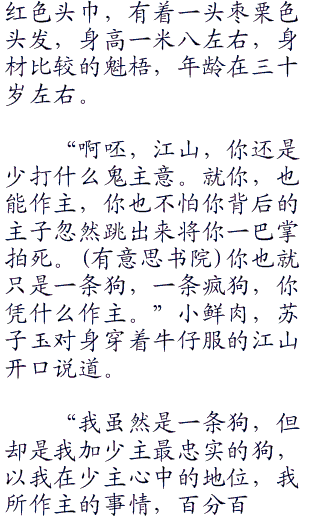 红色头巾，有着一头枣栗色
头发，身高一米八左右，身
材比较的魁梧，年龄在三十
岁左右。
“啊呸，江山，你还是
少打什么鬼主意。就你，也
能作主，你也不怕你背后的
主子忽然跳出来将你一巴掌
拍死。(有意思书院)你也就
只是一条狗，一条疯狗，你
凭什么作主。”小鲜肉，苏
子玉对身穿着牛仔服的江山
开口说道。
“我虽然是一条狗，但
却是我加少主最忠实的狗，
以我在少主心中的地位，我
所作主的事情，百分百